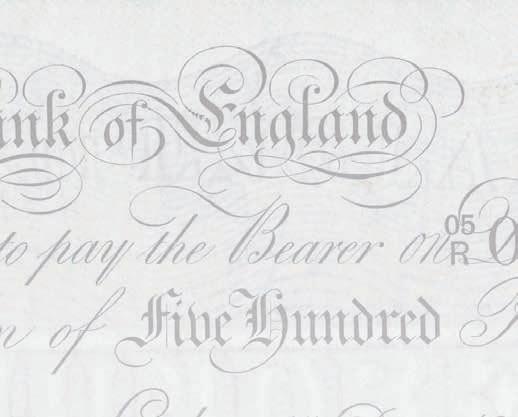 ink of England
to pay the Bearer on
05
R 0
n of Five Hundred